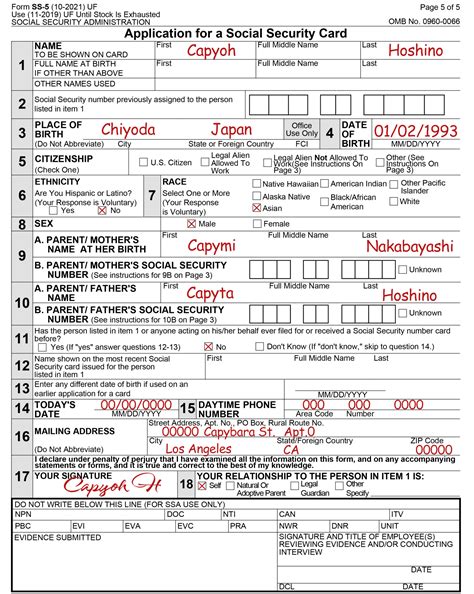 Form SS-5 (10-2021) UF
Use (11-2019) UF Until Stock Is Exhausted
SOCIAL SECURITY ADMINISTRATION
Page 5 of 5
OMB No. 0960-0066
Application for a Social Security Card
1 NAME TO BE SHOWN ON CARD First Capyoh Full Middle Name Last Hoshino
FULL NAME AT BIRTH IF OTHER THAN ABOVE First Full Middle Name Last
OTHER NAMES USED
2 Social Security number previously assigned to the person listed in item 1
3 PLACE OF BIRTH (Do Not Abbreviate) Chiyoda City Japan State or Foreign Country Office Use Only FCI 4 DATE OF BIRTH 01/02/1993 MM/DD/YYYY
5 CITIZENSHIP (Check One) U.S. Citizen Legal Alien Allowed To Work Legal Alien Not Allowed To Work(See Instructions On Page 3) Other (See Instructions On Page 3)
6 ETHNICITY Are You Hispanic or Latino? (Your Response is Voluntary) Yes No
7 RACE Select One or More (Your Response is Voluntary) Native Hawaiian Alaska Native Asian American Indian Black/African American Other Pacific Islander White
8 SEX Male Female
9 A. PARENT/ MOTHER'S NAME AT HER BIRTH First Capymi Full Middle Name Last Nakabayashi
B. PARENT/ MOTHER'S SOCIAL SECURITY NUMBER (See instructions for 9B on Page 3) Unknown
10 A. PARENT/ FATHER'S NAME First Capyta Full Middle Name Last Hoshino
B. PARENT/ FATHER'S SOCIAL SECURITY NUMBER (See instructions for 10B on Page 3) Unknown
11 Has the person listed in item 1 or anyone acting on his/her behalf ever filed for or received a Social Security number card before?
Yes (If "yes" answer questions 12-13) No Don't Know (If "don't know," skip to question 14.)
12 Name shown on the most recent Social Security card issued for the person listed in item 1 First Full Middle Name Last
13 Enter any different date of birth if used on an earlier application for a card MM/DD/YYYY
14 TODAY'S DATE 00/00/0000 MM/DD/YYYY 15 DAYTIME PHONE NUMBER 000 000 0000 Area Code Number
16 MAILING ADDRESS (Do Not Abbreviate) Street Address, Apt. No., PO Box, Rural Route No.
00000 Capybara St. Apt.0
City State/Foreign Country ZIP Code
Los Angeles CA 00000
I declare under penalty of perjury that I have examined all the information on this form, and on any accompanying statements or forms, and it is true and correct to the best of my knowledge.
17 YOUR SIGNATURE Capyoh H 18 YOUR RELATIONSHIP TO THE PERSON IN ITEM 1 IS:
Self Natural Or Adoptive Parent Legal Guardian Other Specify
DO NOT WRITE BELOW THIS LINE (FOR SSA USE ONLY)
NPN DOC NTI CAN ITV
PBC EVI EVA EVC PRA NWR DNR UNIT
EVIDENCE SUBMITTED
SIGNATURE AND TITLE OF EMPLOYEE(S) REVIEWING EVIDENCE AND/OR CONDUCTING INTERVIEW
DATE
DCL DATE